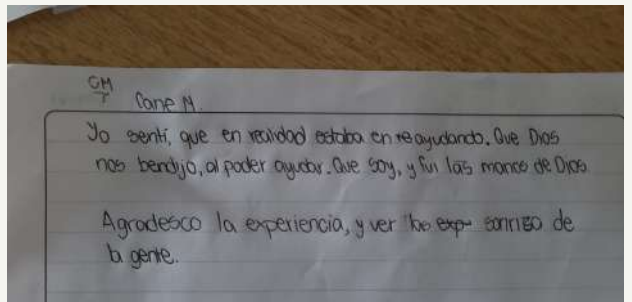 CM
Dane M.
Yo sentí, que en realidad estaba en re ayudando. Que Dios
nos bendijo, al poder ayudar. Que soy, y fui las manos de Dios.
Agradesco la experiencia, y ver la sonrisa de
la gente.